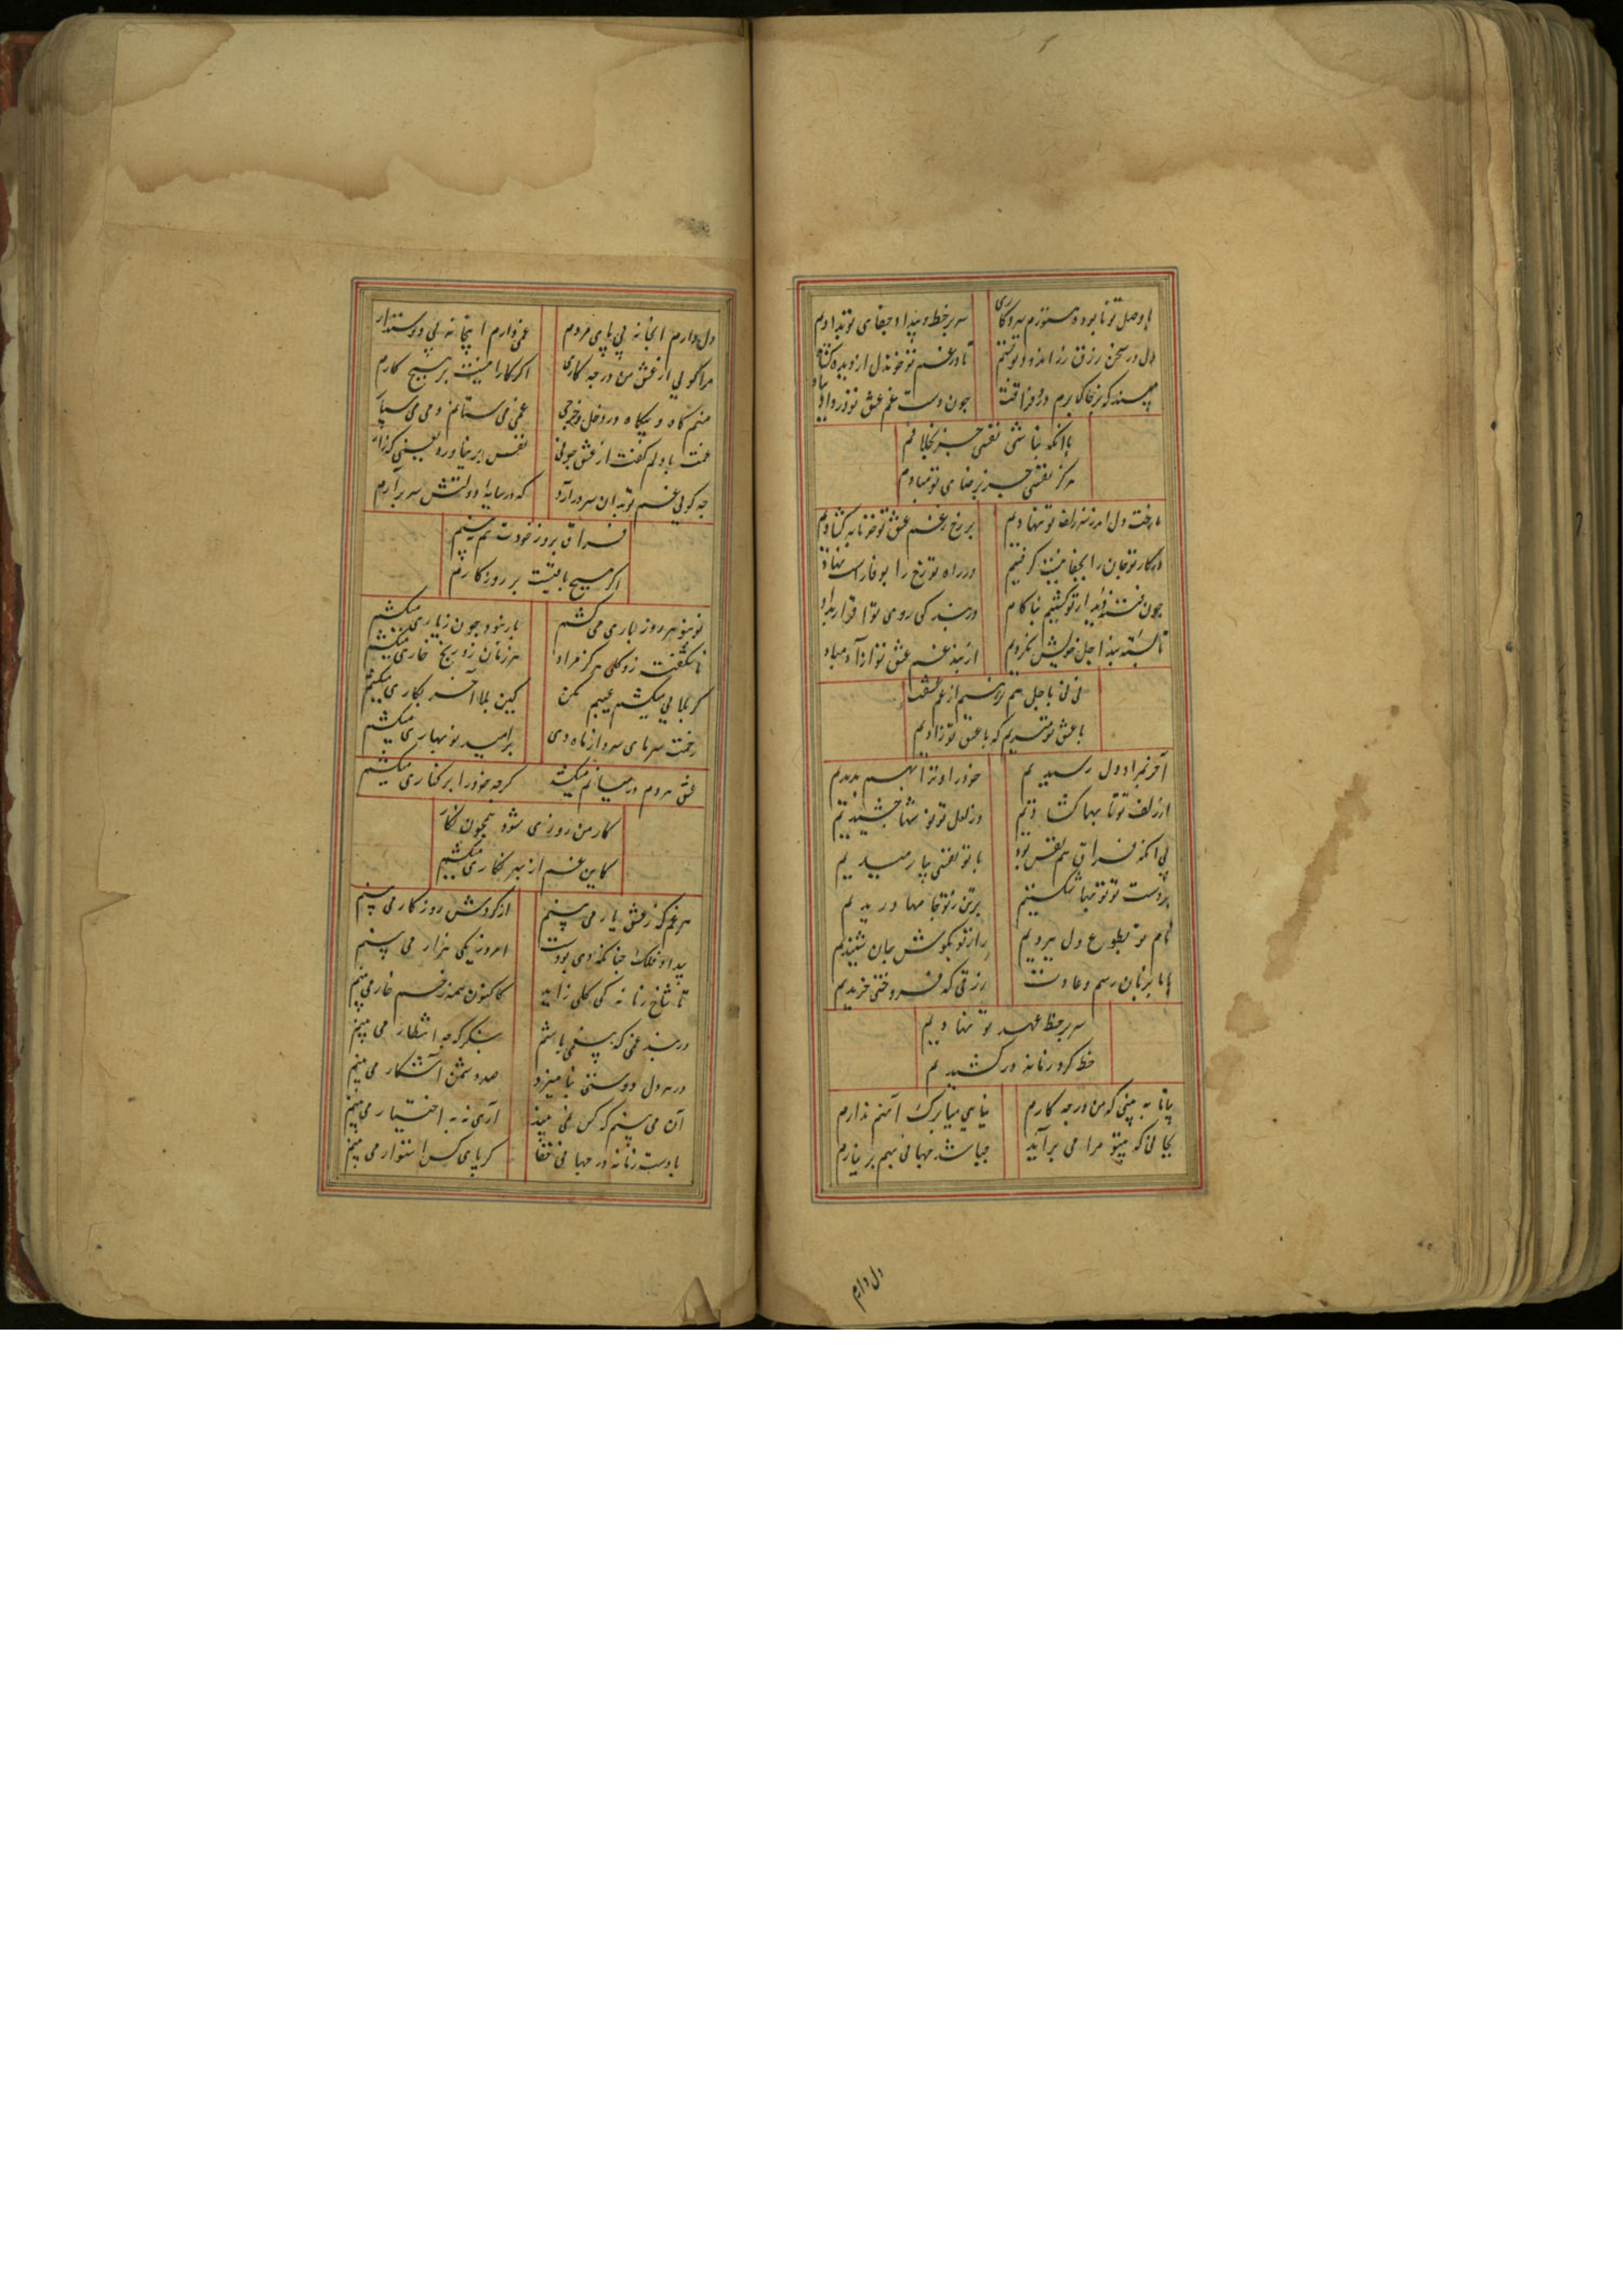 با وصل تو نابوده هنوزم سر و کاری سر بر خط و بیداد و جفای تو نهادیم
دل در سخن رزق زراندود تو بستیم تا در غم تو خون دل از دیده گشادیم
مپسند که بر خاک درم در فراقت چون دست غم عشق تو در داد
با آنکه نباشی نفسی جز بخلافم
هرگز نفسی جز برضای تو مبادم
ما رخت دل اندر سر زلف تو نهادیم بر رخ ز غم عشق تو خونابه گشادیم
در کار تو جان را بجفا نیست گرفتیم در راه تو رخ را بوفا راست نهادیم
چون فتنه دیدار تو گشتیم بناکام در بندگی روی تو اقرار بدادیم
تا بسته بند اجل خویش نگردیم از بند غم عشق تو آزاد مبادیم
نی نی باجل هم نرهیم از غم عشقت
با عشق تو میریم که با عشق تو زادیم
آخر بمراد دل رسیدیم خود را و ترا بهم بدیدیم
از زلف تو تابها گشادیم وز لعل تو نوشها چشیدیم
بی آنکه فراق هم نفس بود با تو نفسی بیارمیدیم
بر دست تو توبها شکستیم بر تن ز تو جامها دریدیم
نام تو بطوع دل ببردیم راز تو بگوش جان شنیدیم
ما با بزبان رسم و عادت زرقی که فروختی خریدیم
سر بر خط عهد تو نهادیم
خط گرد زمانه در کشیدیم
بیا تا ببینی که من در چه کارم بیایی مبارک آمنم ندارم
بجانی که بیتو مرا می برآید چه باشد جهانی بهم بر نیارم
دل دارم
دل دارم انجا نه بی پای مردم غمی دارم اینجا نه بی دوستدار
مرا گویی از عشق من در چه کاری اگر کار اینست بر هیچ کارم
منم گاه و بیگاه در دخل و خرجی غمی می ستانم دمی می سپا
غمت با دلم گفت از عشق چونی نفس بر نیاورد یعنی که زار
چه گویی غم تو بدان سر درآرد که در سایه دولتش سر برآرم
فراق بروز خودت هم نبینم
اگر هیچ باقیست بر روزگارم
نو بنو هر روز باری می کشم بار نبود چون ز یاری میکشم
ناشکفته زو گلی هرگز مراد هر زمان زو رنج خاری میکشم
گر بلایی میکشم عیبم مکن کین بلا آخر بکاری میکشم
زحمت سرمای سرد از ماه دی بر امید نو بهاری میکشم
عشق هر دم در میانم میکشد گرچه خود را بر کناری میکشم
کار من روزی شود همچون نگار
کاین غم از بهر نگاری میکشم
هر غم که ز عشق یار می بینم از گردش روزگار می بینم
بیداد فلک چنانکه دی بودست امروز یکی هزار می بینم
تا شاخ زمانه کی گلی زاید کاکنون همه زخم خار می بینم
در بند غمی که بی غمی باشم بنگر که چه انتظار می بینم
در هر دل دوستی نیامیزد صد دشمن آشکار می بینم
آن می بینم که کس نمی بیند آری نه به اختیار می بینم
با دست زمانه در جهان قفا گر پای کس استوار می بینم